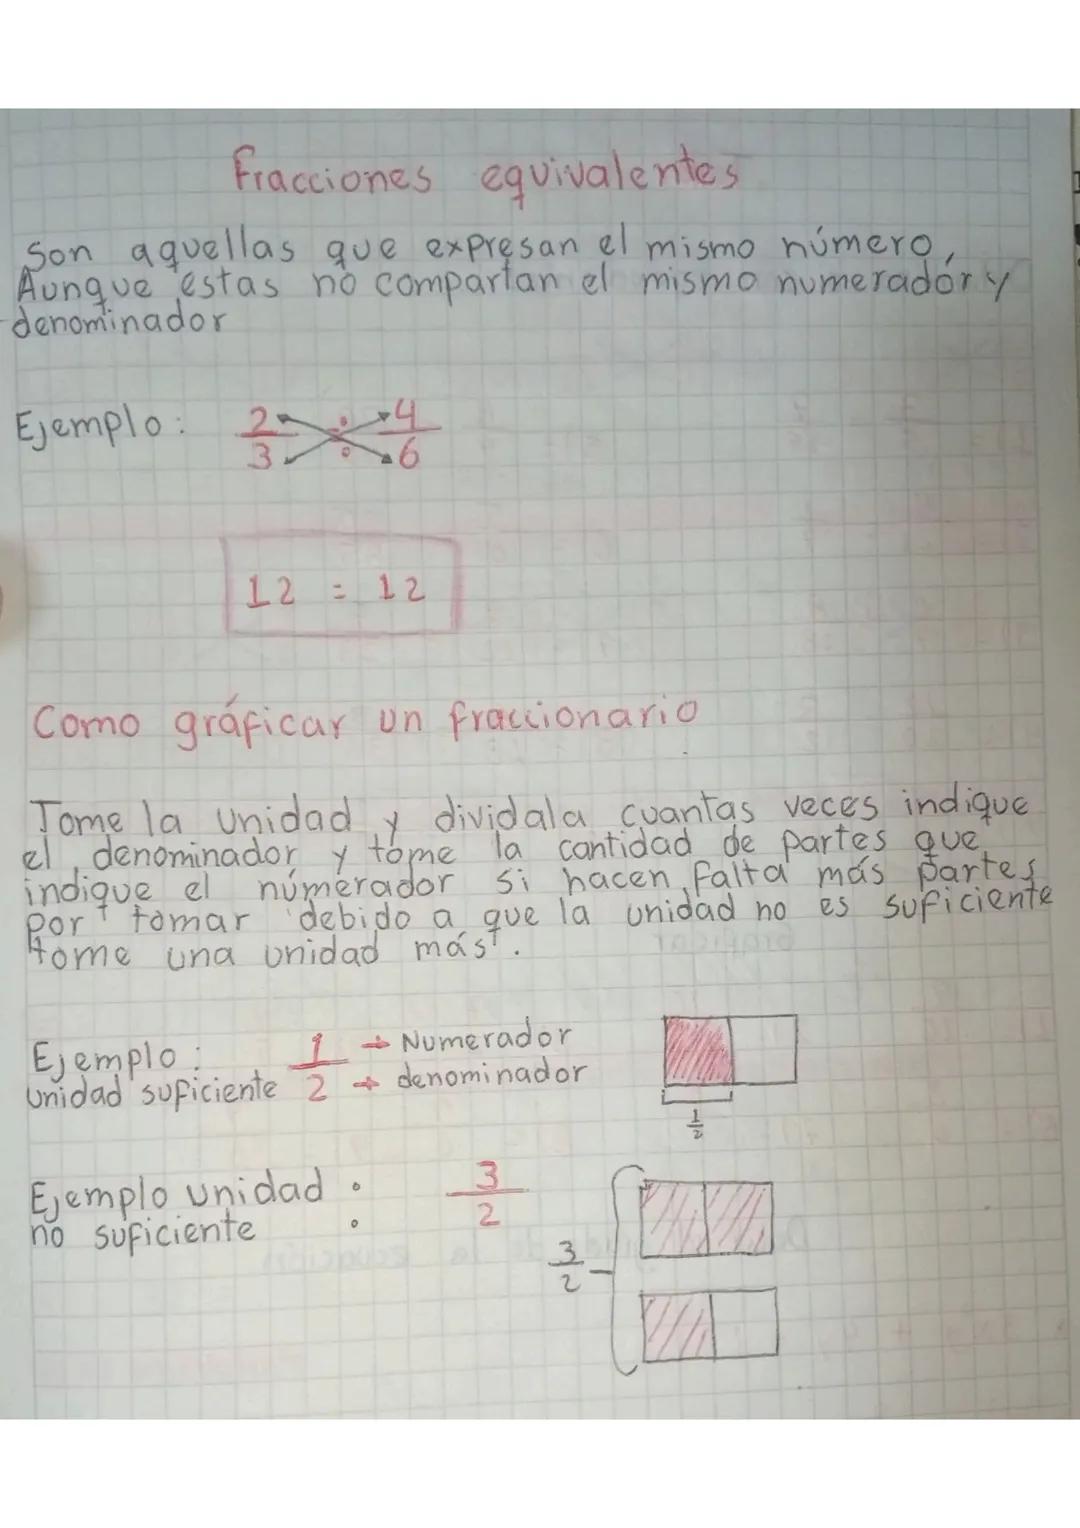 Fracciones equivalentes
Son aquellas que expresan el mismo número,
Aunque estas no compartan el mismo numerador y
denominador
Ejemplo: 2/3 ÷ 4/6
12 = 12
Como gráficar un fraccionario
Tome la unidad y dividala cuantas veces indique
el denominador y tome la cantidad de partes que
indique el númerador si hacen falta más partes
por tomar debido a que la unidad no es suficiente
tome una unidad más.
Ejemplo: 1 → Numerador
unidad suficiente 2 → denominador
1/2
Ejemplo unidad : 3/2
no suficiente
3/2